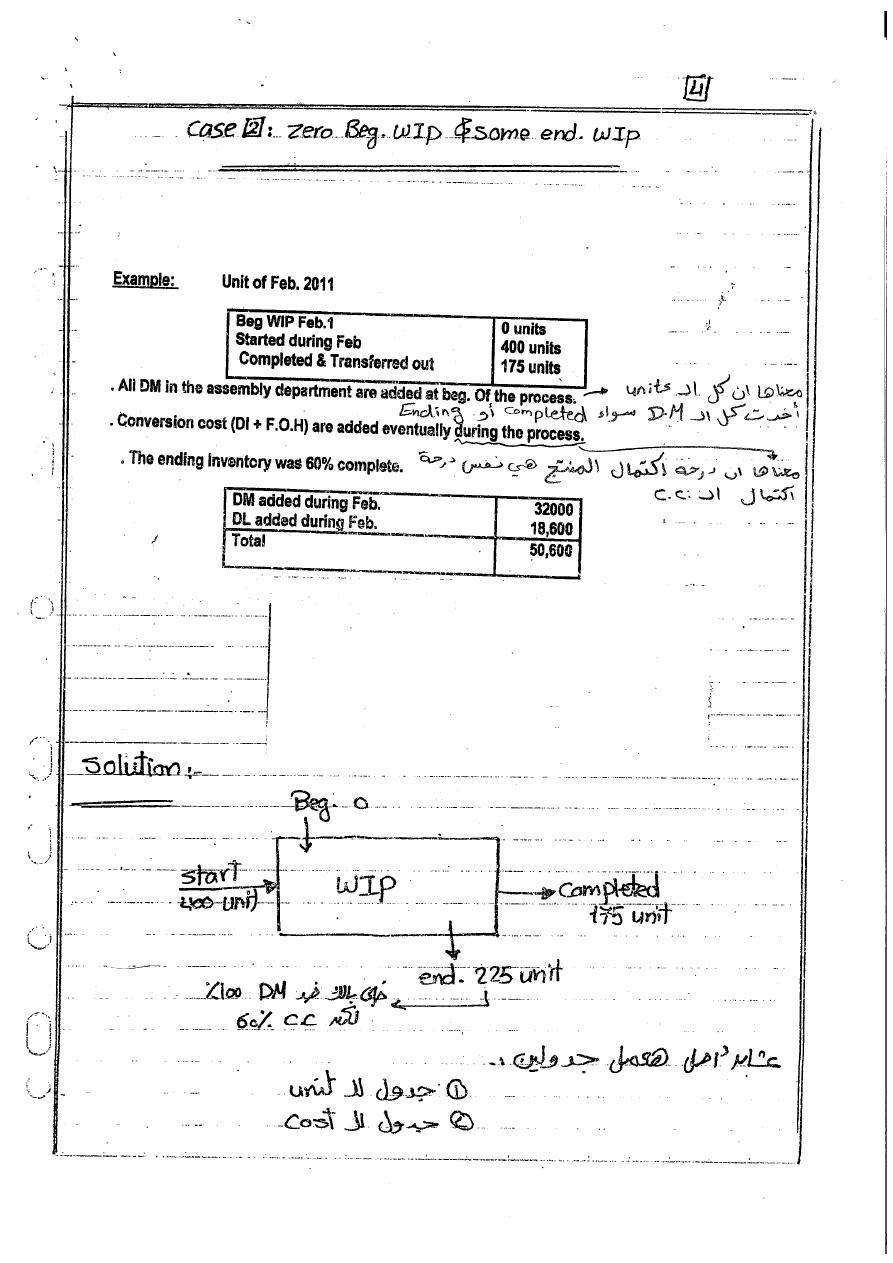 4
Case 2: Zero Beg. WIP & Some end. WIP
Example: Unit of Feb. 2011
Beg WIP Feb.1 0 units
Started during Feb 400 units
Completed & Transferred out 175 units
. All DM in the assembly department are added at beg. Of the process. → معناها ان كل الـ units
أخدت كل الـ D.M سواء Completed أو Ending
. Conversion cost (Dl + F.O.H) are added eventually during the process.
. The ending inventory was 60% complete. معناها ان درجة اكتمال المنتج هي نفس درجة
اكتمال الـ C.C.
DM added during Feb. 32000
DL added during Feb. 18,600
Total 50,600
Solution:-
Beg. 0
start
400 unit
WIP
Completed
175 unit
end. 225 unit
خدى بالك خد DM 100٪
لكن C.C 60%
عشان احل هعمل جدولين
① جدول لل unit
② جدول لل Cost